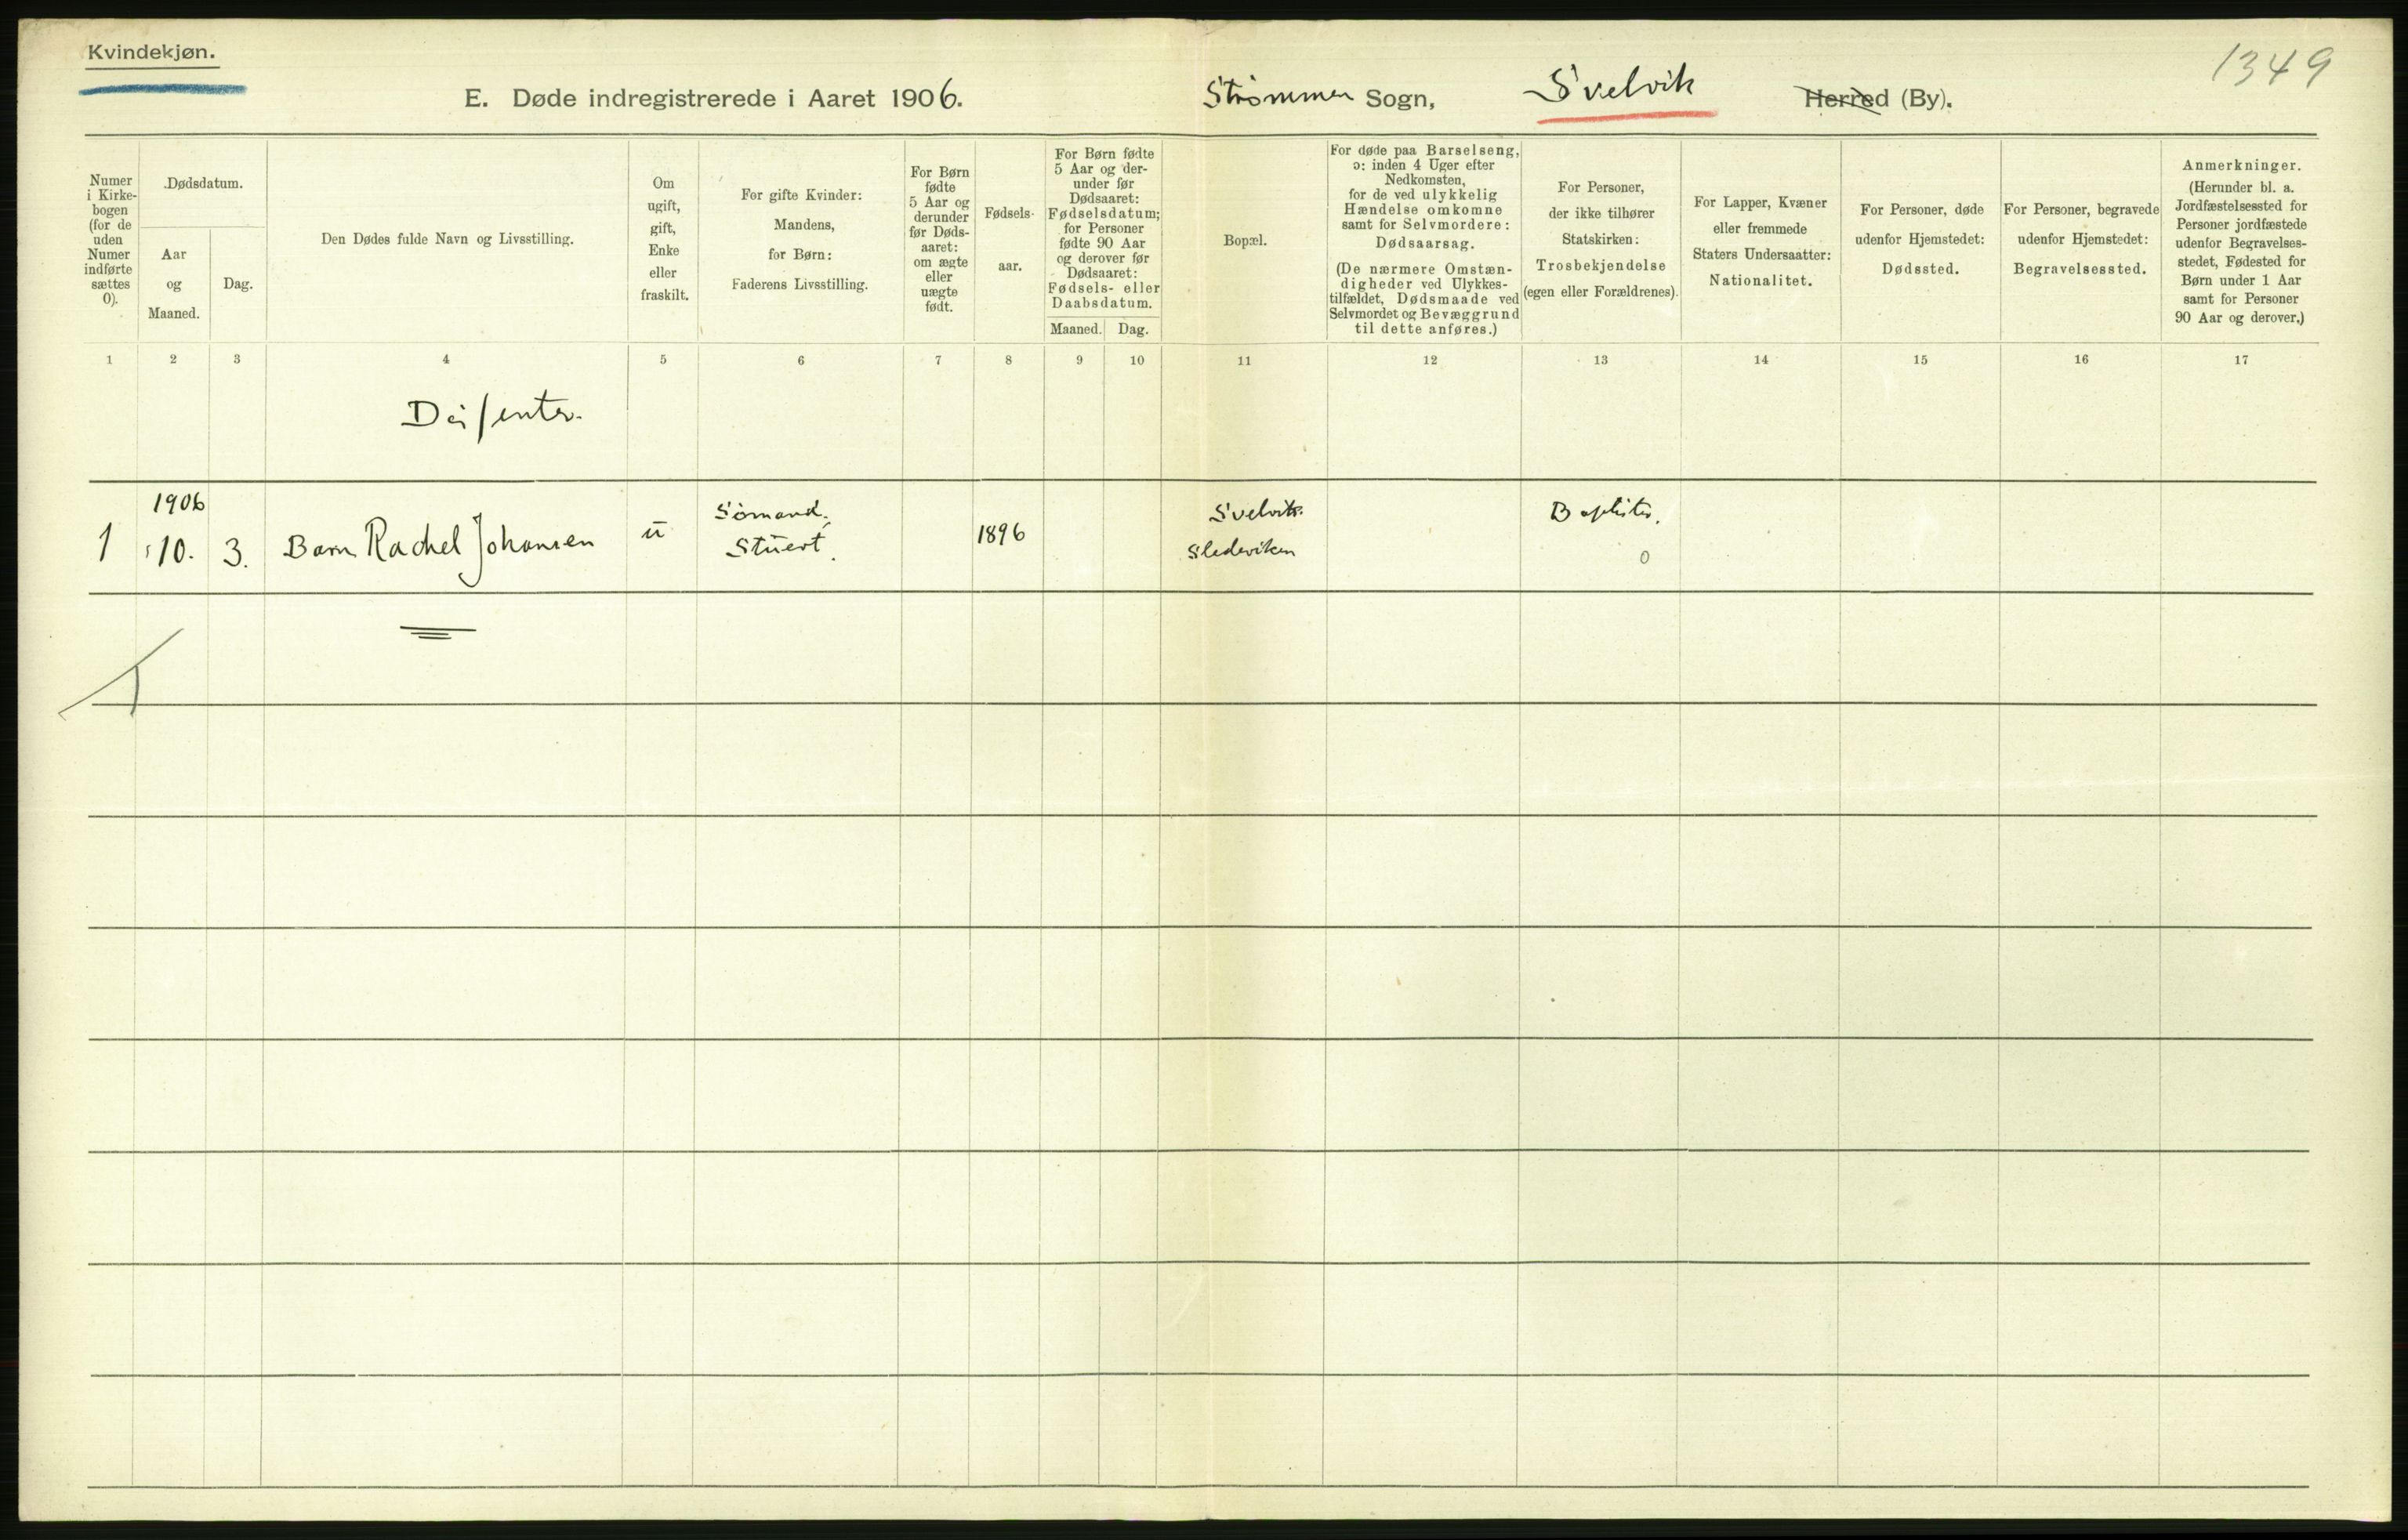 Kvindekjøn.
1349
E. Døde indregistrerede i Aaret 1906.
Strømmen Sogn, Svelvik Herred (By).
Numer
i Kirke-
bogen
(for de
uden
Numer
indførte
sættes
0).
Dødsdatum.
Aar
og
Maaned.
Dag.
Den Dødes fulde Navn og Livsstilling.
Om
ugift,
gift,
Enke
eller
fraskilt.
For gifte Kvinder:
Mandens,
for Børn:
Faderens Livsstilling.
For Børn
fødte
5 Aar og
derunder
før Døds-
aaret:
om ægte
eller
uægte
født.
Fødsels-
aar.
For Børn fødte
5 Aar og der-
under før
Dødsaaret:
Fødselsdatum;
for Personer
fødte 90 Aar
og derover før
Dødsaaret:
Fødsels- eller
Daabsdatum.
Maaned.
Dag.
Bopæl.
For døde paa Barselseng,
ɔ: inden 4 Uger efter
Nedkomsten,
for de ved ulykkelig
Hændelse omkomne
samt for Selvmordere:
Dødsaarsag.
(De nærmere Omstæn-
digheder ved Ulykkes-
tilfældet, Dødsmaade ved
Selvmordet og Bevæggrund
til dette anføres.)
For Personer,
der ikke tilhører
Statskirken:
Trosbekjendelse
(egen eller Forældrenes).
For Lapper, Kvæner
eller fremmede
Staters Undersaatter:
Nationalitet.
For Personer, døde
udenfor Hjemstedet:
Dødssted.
For Personer, begravede
udenfor Hjemstedet:
Begravelsessted.
Anmerkninger.
(Herunder bl. a.
Jordfæstelsessted for
Personer jordfæstede
udenfor Begravelses-
stedet, Fødested for
Børn under 1 Aar
samt for Personer
90 Aar og derover.)
1 2 3 4 5 6 7 8 9 10 11 12 13 14 15 16 17
Dissenter.
1906
1 10. 3. Barn Rachel Johansen u
Sömand.
Stuert.
1896
Svelvik.
Sledeviken
Baptister.
0